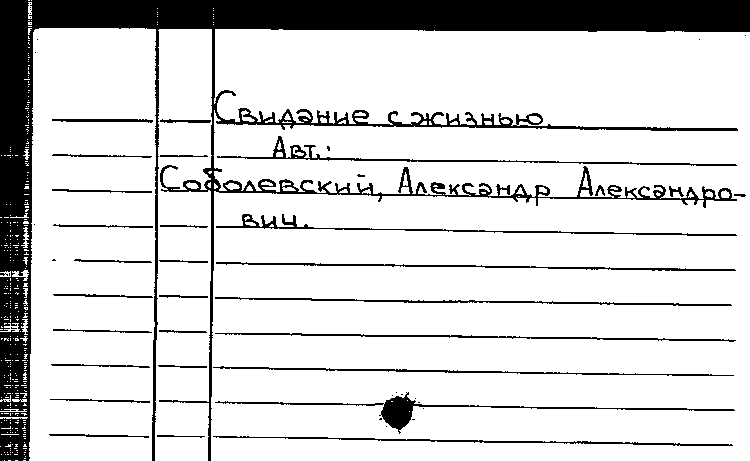 Свидание с жизнью.
Авт.:
Соболевский, Александр Александро-
вич.